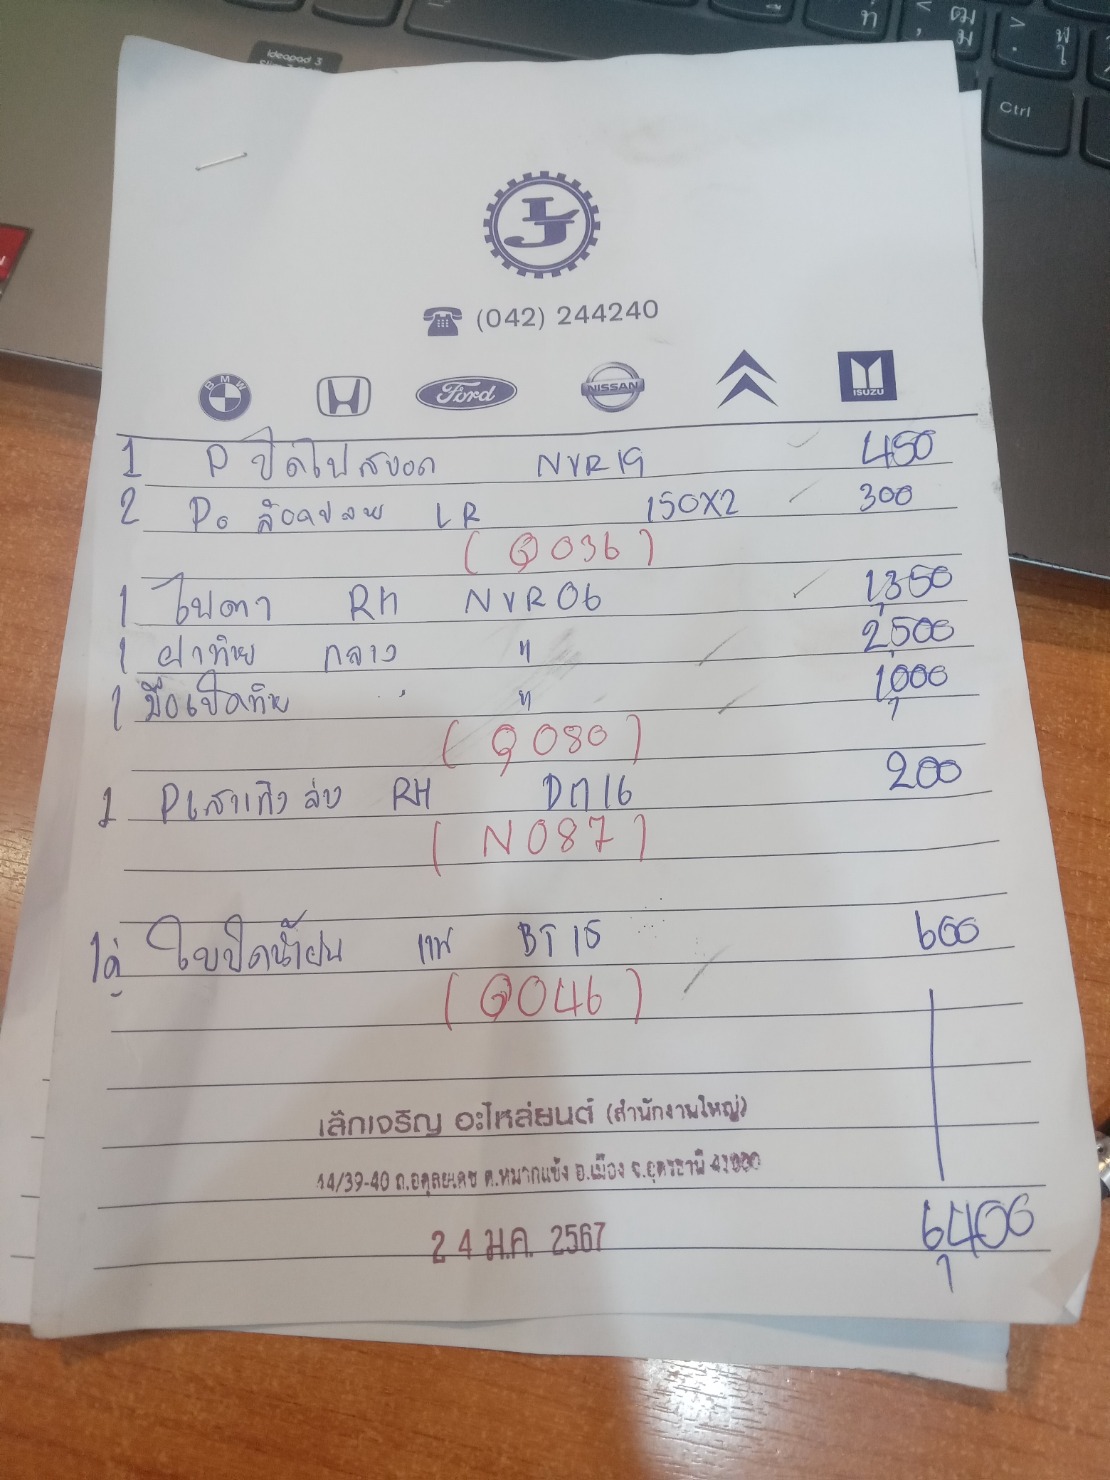 ideapad 3
Ctrl
LJ
(042) 244240
BMW Ford NISSAN ISUZU
1 P ปิดไฟสปอต NVR19 450
2 Po ล้อคปลาย LR 150X2 300
(Q036)
1 ไฟตา RH NVR06 1,350
1 ฝาท้าย กลาง " 2,500
1 มือเปิดท้าย " 1,000
(Q080)
1 Pเสาเก๋งล่าง RH DM16 200
(N087)
1คู่ ใบปัดน้ำฝน แท้ BT15 600
(Q046)
เล็กเจริญ อะไหล่ยนต์ (สำนักงานใหญ่)
44/39-40 ถ.อดุลยเดช ต.หมากแข้ง อ.เมือง จ.อุดรธานี 41000
24 ม.ค. 2567
6,400